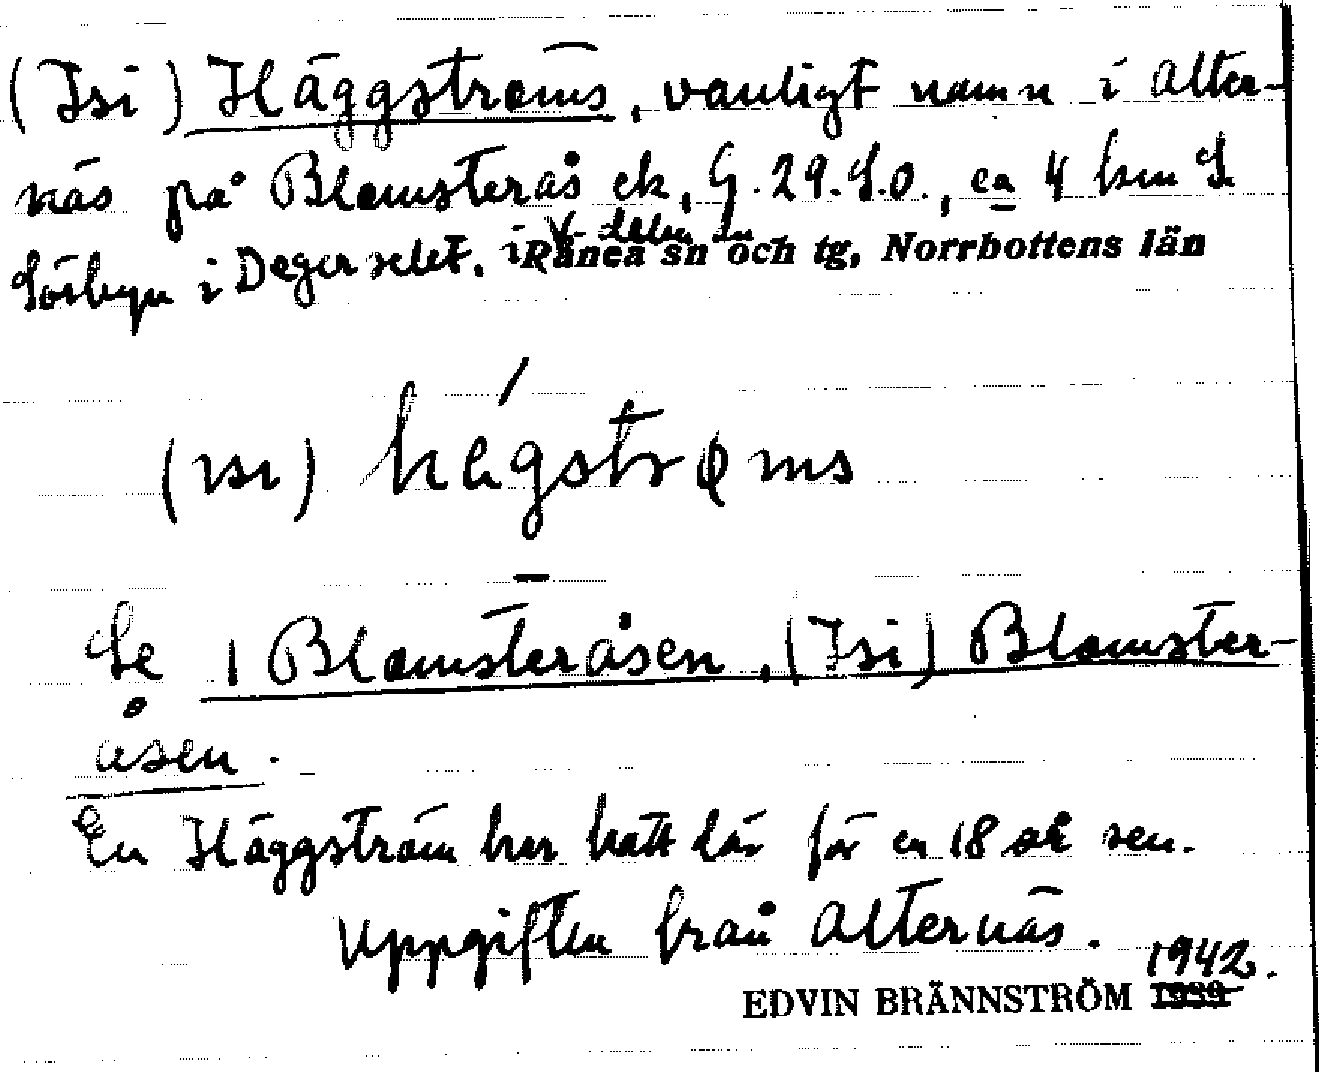 (Isi) Häggströms, vanligt namn i Alter-
näs på Blomsterås ek, G. 29. S.O., ca 4 km S
Sörbyn i Degerselet, i V. delen av Råneå sn och tg, Norrbottens län
(ısı) hégstrøms
Se 1 Blomsteråsen, (Isi) Blomster-
åsen.
En Häggström har hatt där för en 18 år sen.
Uppgiften från Alternäs.
EDVIN BRÄNNSTRÖM 1939 1942.